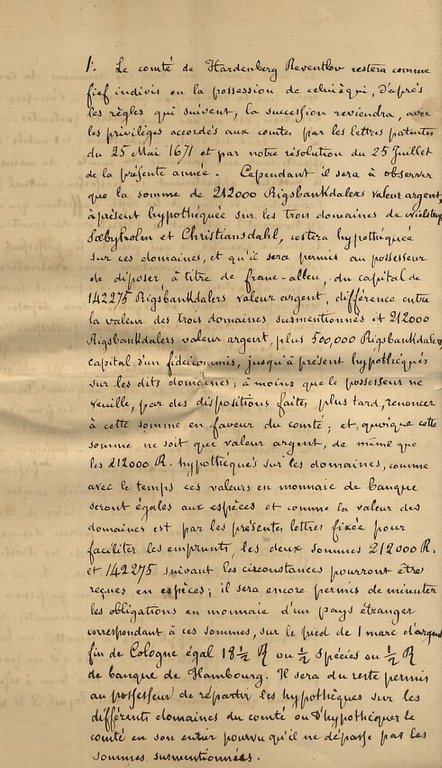 1. Le comté de Hardenberg Reventlov restera comme
fief indivis en la possession de celui à qui, d'après
les règles qui suivent, la succession reviendra, avec
les privilèges accordés aux comtes par les lettres patentes
du 25 Mai 1671 et par notre résolution du 25 Juillet
de la présente année. Cependant il sera à observer
que la somme de 212000 Rigsbankdalers valeur argent,
à présent hypothéquée sur les trois domaines de
Sæbyholm et Christiansdahl, restera hypothéquée
sur ces domaines, et qu'il sera permis au possesseur
de disposer à titre de franc-alleu, du capital de
142275 Rigsbankdalers valeur argent, différence entre
la valeur des trois domaines susmentionnés et 212000
Rigsbankdalers valeur argent, plus 500,000 Rigsbankdalers
capital d'un fidéicommis, jusqu'à présent hypothéqués
sur les dits domaines; à moins que le possesseur ne
veuille, par des dispositions faites plus tard, renoncer
à cette somme en faveur du comté; et, quoique cette
somme ne soit que valeur argent, de même que
les 212000 R. hypothéqués sur les domaines, comme
avec le temps ces valeurs en monnaie de banque
seront égales aux espèces et comme la valeur des
domaines est par les présentes lettres fixée pour
faciliter les emprunts, les deux sommes 212000 R.
et 142275 suivant les circonstances pourront être
reçues en espèces; il sera encore permis de minuter
les obligations en monnaie d'un pays étranger
correspondant à ces sommes, sur le pied de 1 marc d'argent
fin de Cologne égal 18½ R ou ½ Spécies ou ½ R
de banque de Hambourg. Il sera du reste permis
au possesseur de répartir les hypothèques sur les
différents domaines du comté ou d'hypothéquer le
comté en son entier pourvu qu'il ne dépasse pas les
sommes susmentionnées.